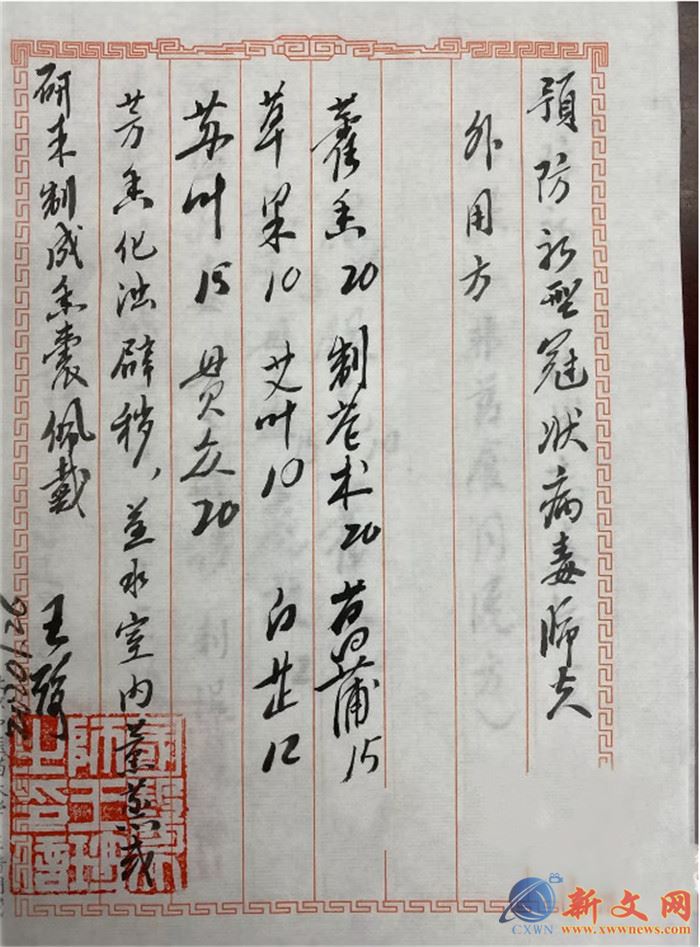 预防新型冠状病毒肺炎
外用方
藿香20 制苍术20 菖蒲15
草果10 艾叶10 白芷12
苏叶15 贯众20
芳香化浊辟秽，煮水室内熏蒸或
研末制成香囊佩戴
王琦
2020.1.26
新文网
CXWN www.xwwnews.com